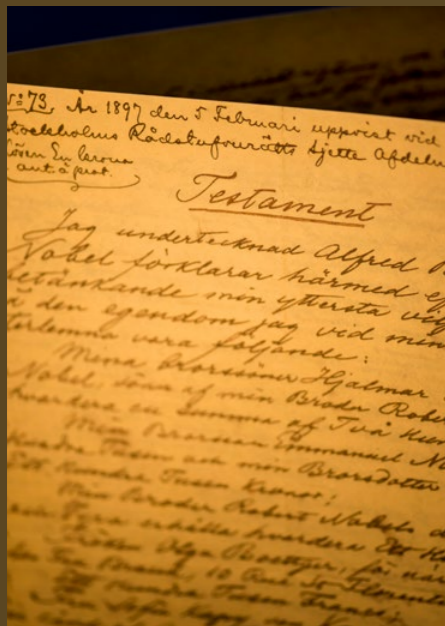 73. År 1897 den 5 Februari uppvist vid
Stockholms Rådstufvurätts sjette Afdeln
lösen En krona
Testament
Jag undertecknad Alfred
Nobel förklarar härmed ef
betänkande min yttersta vil
den egendom jag vid min
terlemna vara följande:
Mina brorsöner Hjalmar
Nobel, söner af min Broder Rober
hvardera en summa af Två Hun
Min Brorson Emmanuel N
Hundra Tusen och min Brorsdotter
Ett Hundra Tusen Kronor;
Min broder Robert Nobels d
erhålla hvardera Ett
Fröken Olga Boettger, för när
10 Rue St Florentin
Hundra Tusen Francs;
Fru Sofie Kapy von